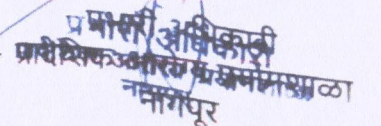 प्रभारी अधिकारी
प्रादेशिक आरोग्य प्रयोगशाला
नागपूर